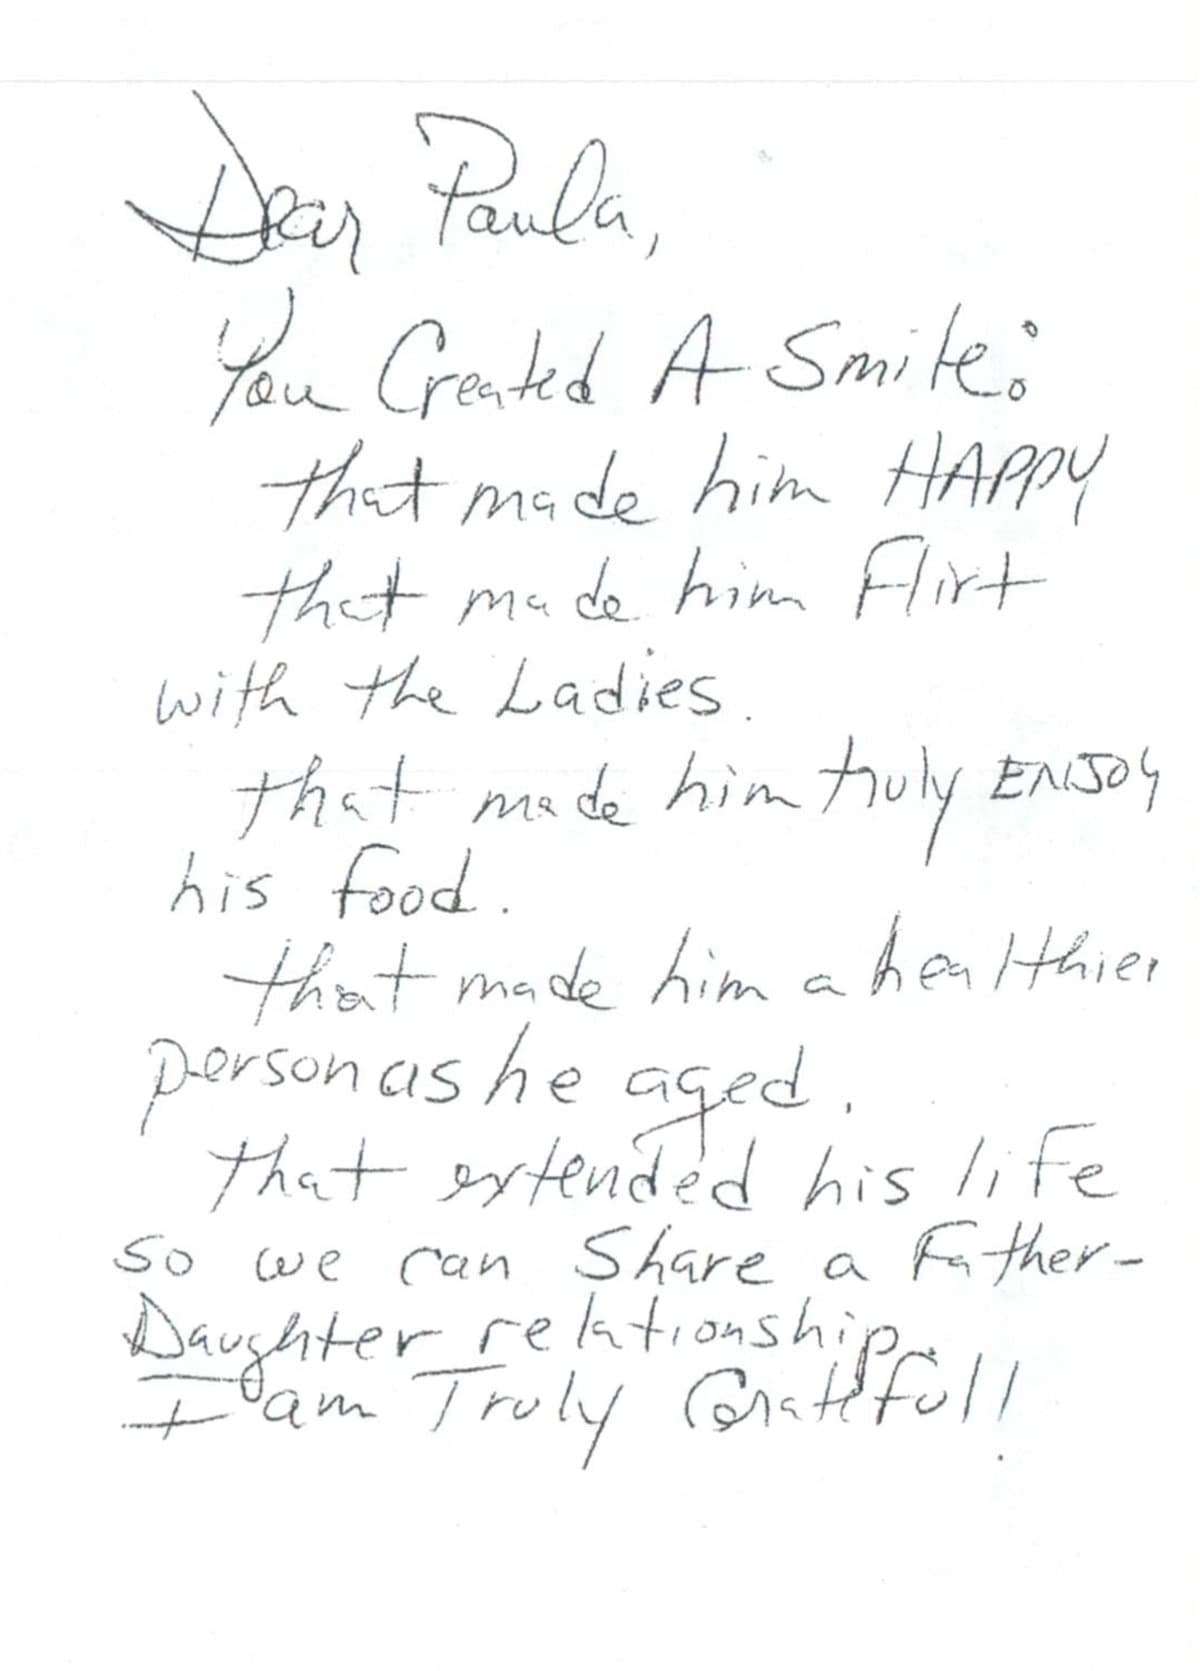 Dear Paula,
You Created A Smile:
that made him HAPPY
that made him Flirt
with the Ladies.
that made him truly ENJOY
his food.
that made him a healthier
person as he aged.
that extended his life
so we can Share a Father-
Daughter relationship.
I am Truly Grateful!